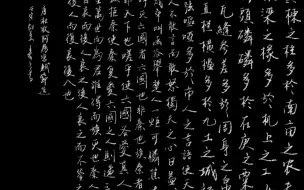 棟之柱多於南畝
梁之椽多於机上之工
頭磷磷多於在庾之粟
瓦縫參差多於周身之
直欄橫檻多於九土之城
弦嘔啞多於市人之言語使天
人不敢言而敢怒獨夫之心日益
卒叫函谷舉楚人一炬可憐焦土
國者六國也非秦也族秦者
也嗟乎使六國各愛其人
拒秦使秦復愛六國之人則遞三
至萬世而為君誰得而族滅也秦人
哀而後人哀之後人哀之而不鑒之
使後人而復哀後人也
唐杜牧阿房宮賦節選